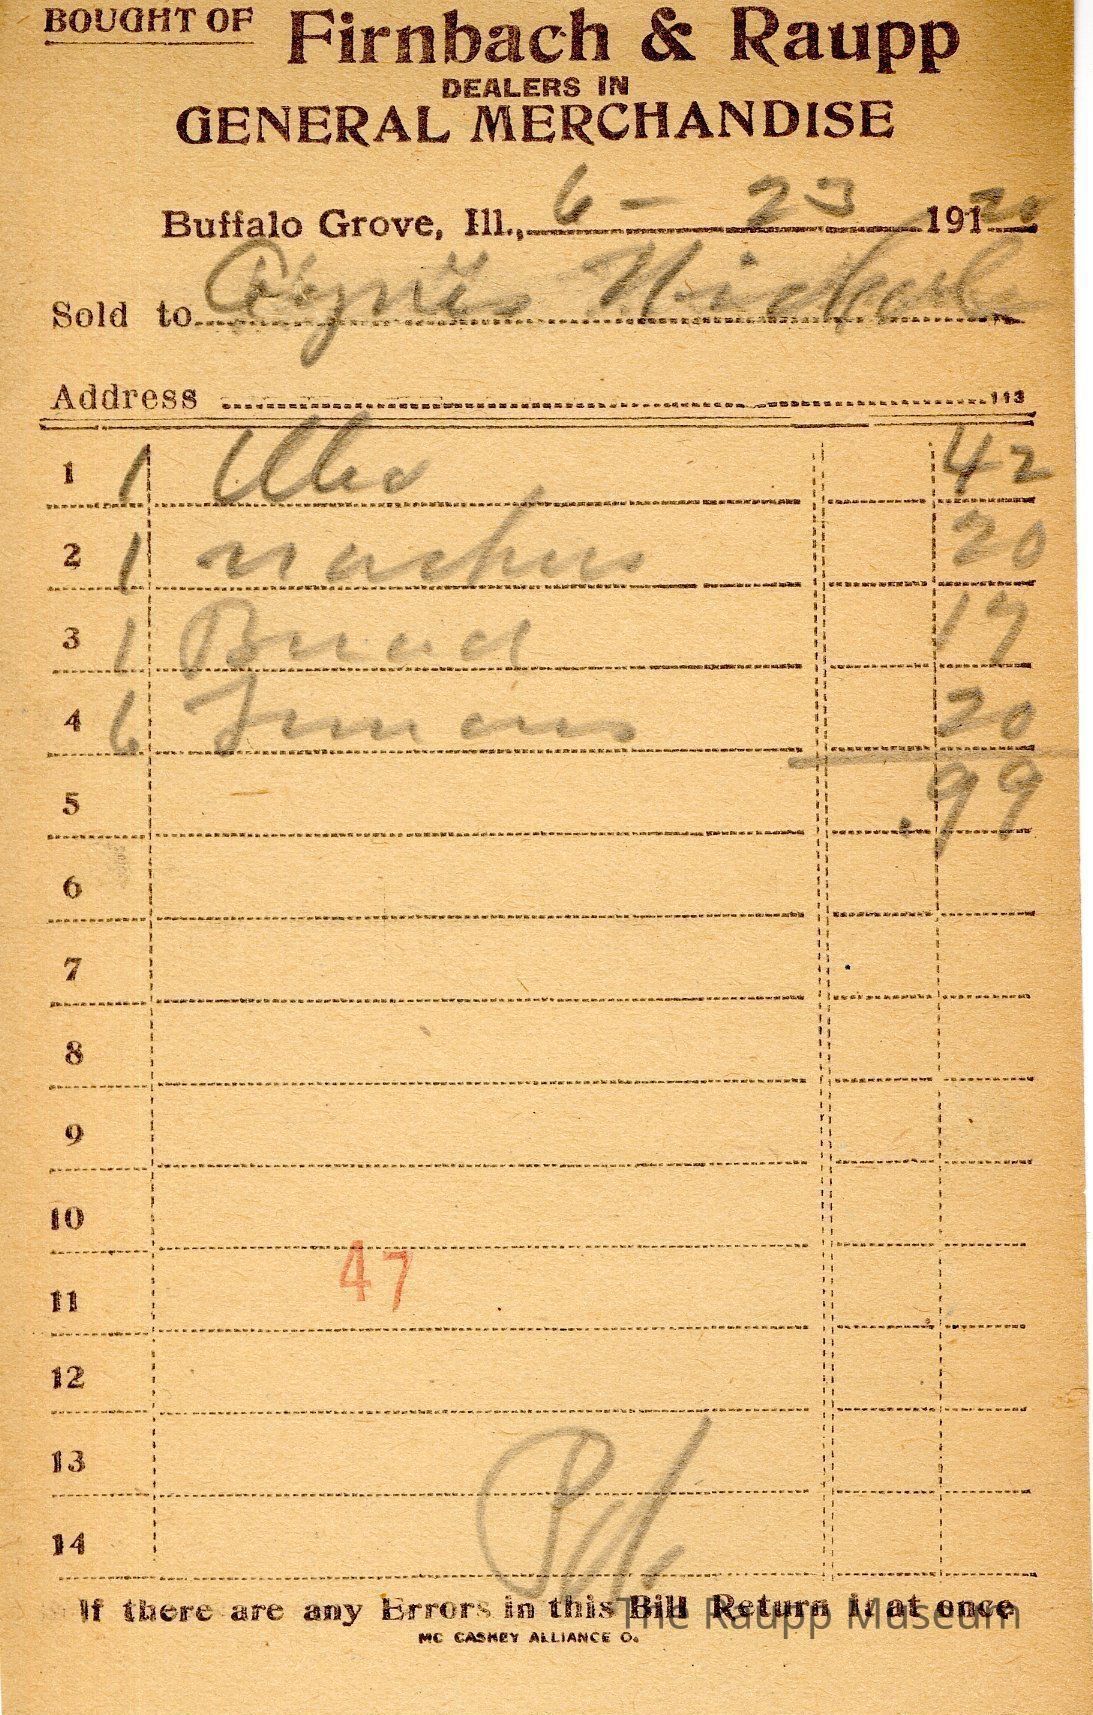 BOUGHT OF Firnbach & Raupp
DEALERS IN
GENERAL MERCHANDISE
Buffalo Grove, Ill., 6 - 23 19120
Sold to Agnes
Address 113
1 1 42
2 1 20
3 1 Bread 17
4 6 Lemons 20
5 .99
6
7
8
9
10
47
11
12
13
14
Pd
If there are any Errors in this Bill Return it at once
The Raupp Museum
MC CASKEY ALLIANCE O.